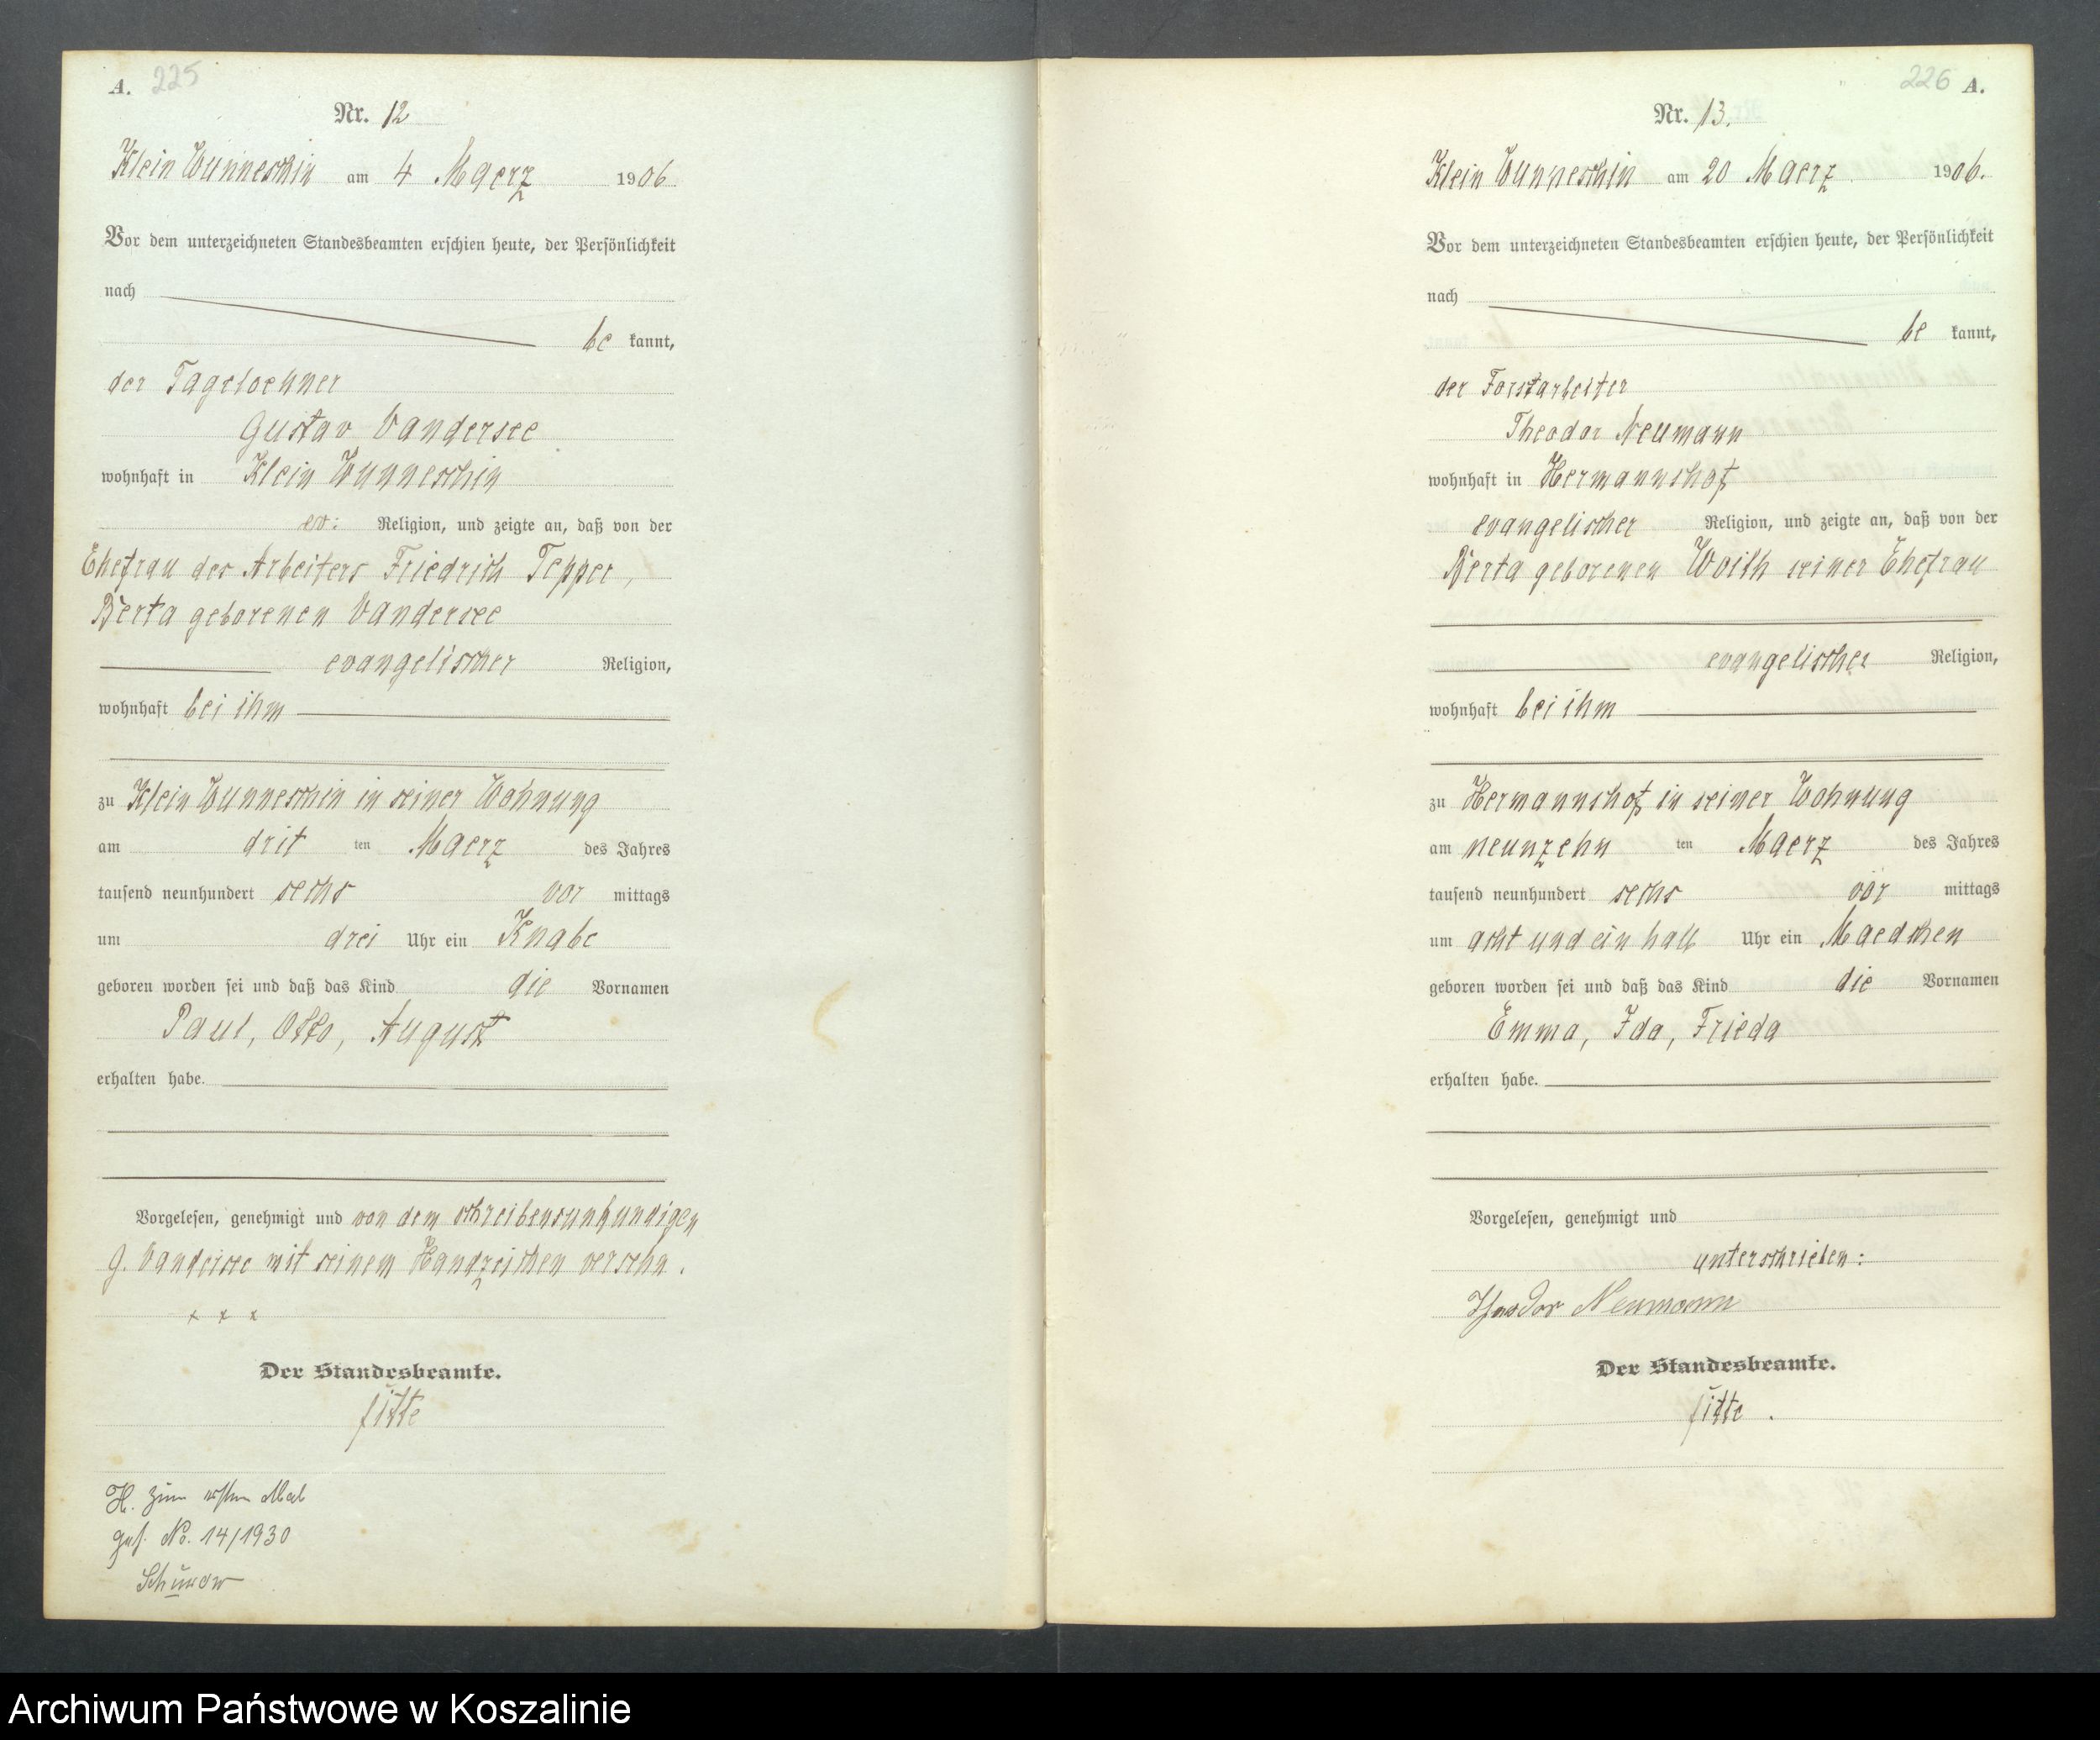 A. 225
Nr. 12
Klein Wunneschin am 4 Maerz 1906
Vor dem unterzeichneten Standesbeamten erschien heute, der Persönlichkeit
nach
be kannt,
der Tageloehner
Gustav Vandersee
wohnhaft in Klein Wunneschin
ev: Religion, und zeigte an, daß von der
Ehefrau des Arbeiters Friedrich Tepper,
Berta geborenen Vandersee
evangelischer Religion,
wohnhaft bei ihm
zu Klein Wunneschin in seiner Wohnung
am drit ten Maerz des Jahres
tausend neunhundert sechs vor mittags
um drei Uhr ein Knabe
geboren worden sei und daß das Kind die Vornamen
Paul, Otto, August
erhalten habe.
Vorgelesen, genehmigt und von dem schreibensunkundigen
G. Vandersee mit seinem Handzeichen versehn.
x x x
Der Standesbeamte.
H. zum ersten Mal
No. 14/1930
226 A.
Nr. 13.
Klein Wunneschin am 20 Maerz 1906.
Vor dem unterzeichneten Standesbeamten erschien heute, der Persönlichkeit
nach
be kannt,
der Forstarbeiter
Theodor Neumann
wohnhaft in Hermannshof
evangelischer Religion, und zeigte an, daß von der
Berta geborenen Woith seiner Ehefrau
evangelischer Religion,
wohnhaft bei ihm
zu Hermannshof in seiner Wohnung
am neunzehn ten Maerz des Jahres
tausend neunhundert sechs vor mittags
um acht und ein halb Uhr ein Maedchen
geboren worden sei und daß das Kind die Vornamen
Emma, Ida, Frieda
erhalten habe.
Vorgelesen, genehmigt und
unterschrieben:
Theodor Neumann
Der Standesbeamte.
Archiwum Państwowe w Koszalinie